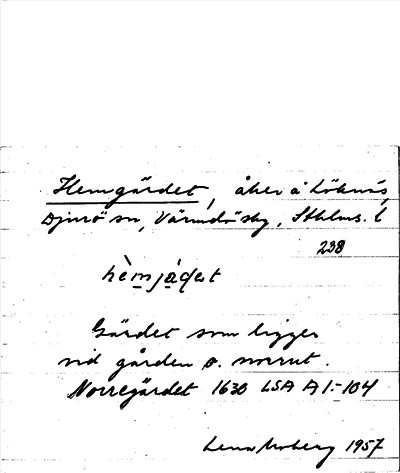 Hemgärdet, åker å Löknäs,
Djurö sn, Värmdö skg, Sthlms. l
238
hèmjàḍat
Gärdet som ligger
vid gården o. norrut.
Norregärdet 1630 LSA A1:-104
Lena Moberg 1957